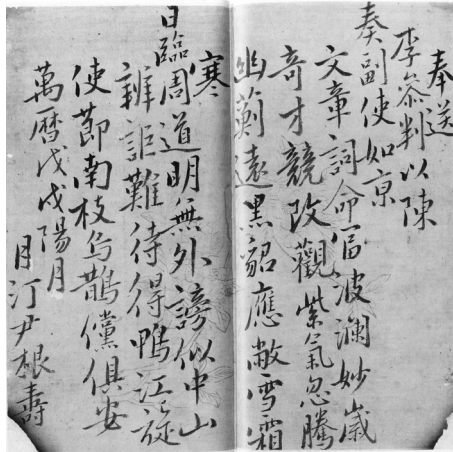 奉送
李參判以陳
奏副使如京
文章詞命富波瀾妙歲
奇才競改觀紫氣忽騰
幽薊遠黑貂應敝雪霜
寒
日臨周道明無外謗似中山
辨詎難待得鴨江旋
使節南枝烏鵲儻俱安
萬曆戊戌陽月
月汀尹根壽